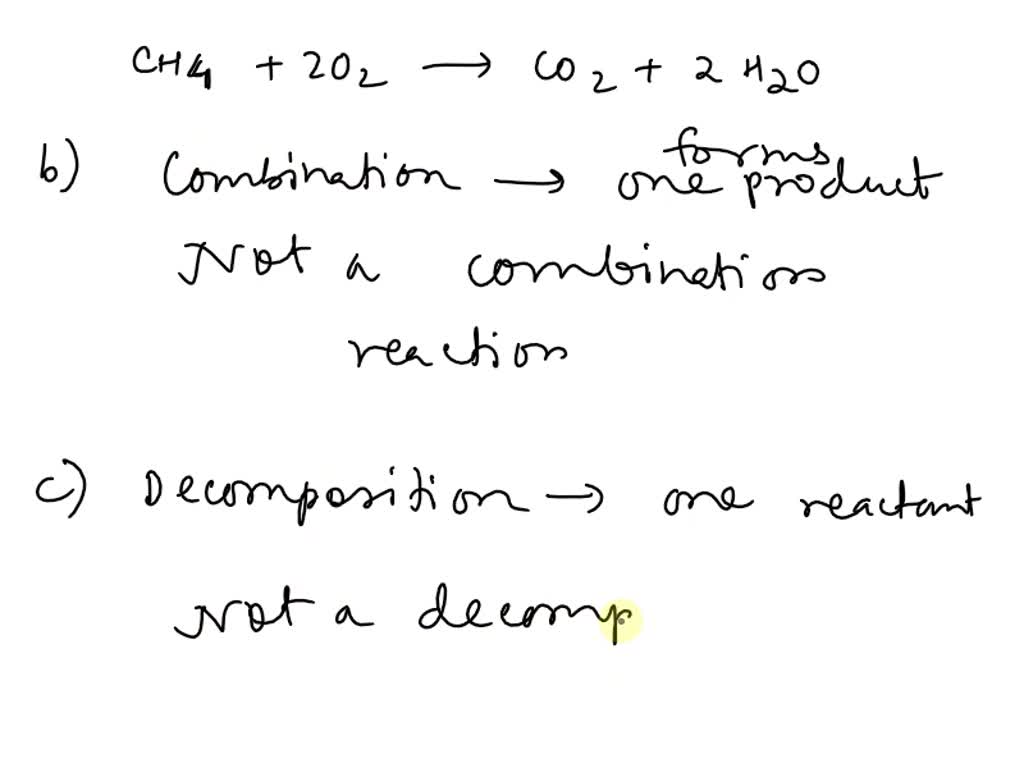 CH4 + 2O2 → CO2 + 2 H2O
b) Combination → forms one product
Not a combination
reaction
c) Decomposition → one reactant
Not a decomp